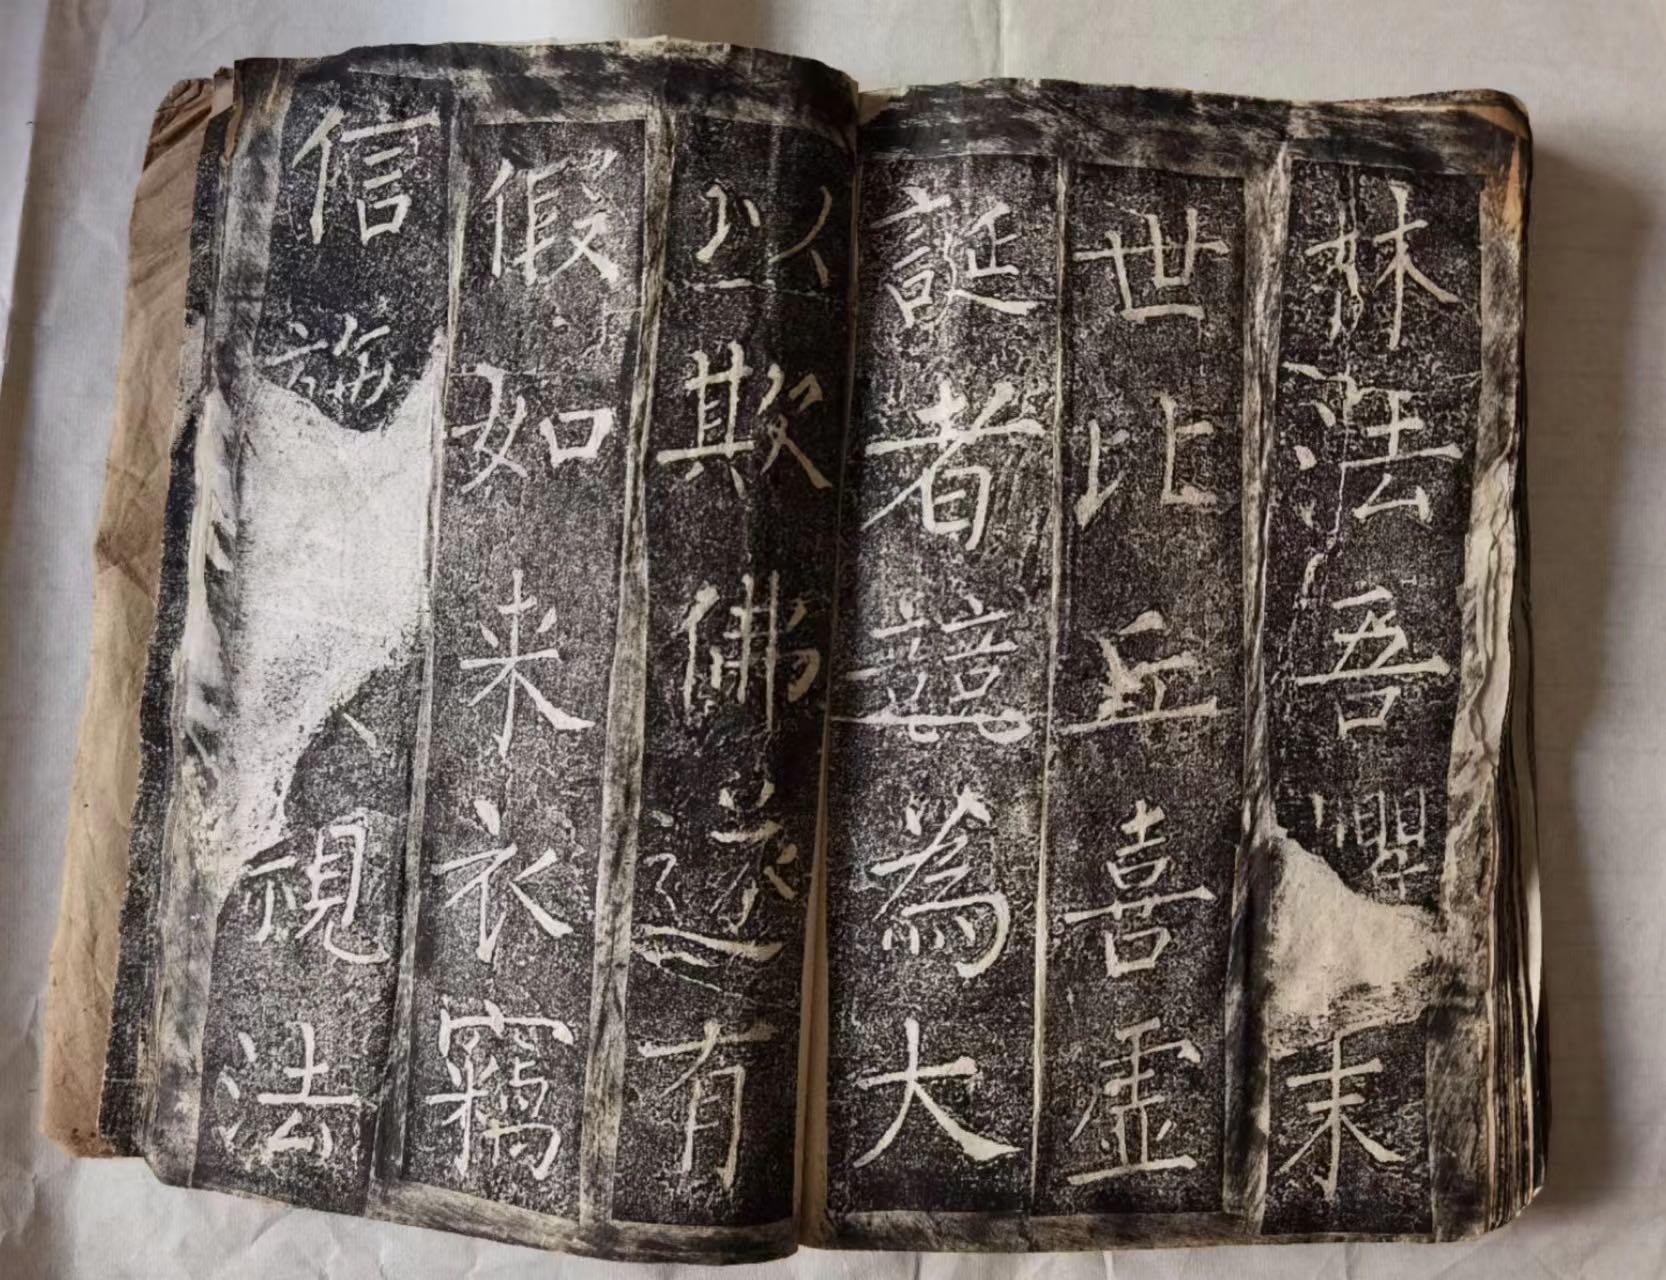 林法吾懼末
世比丘喜虛
誕者譆為大
以欺佛遂有
假如来衣竊
信施
視法